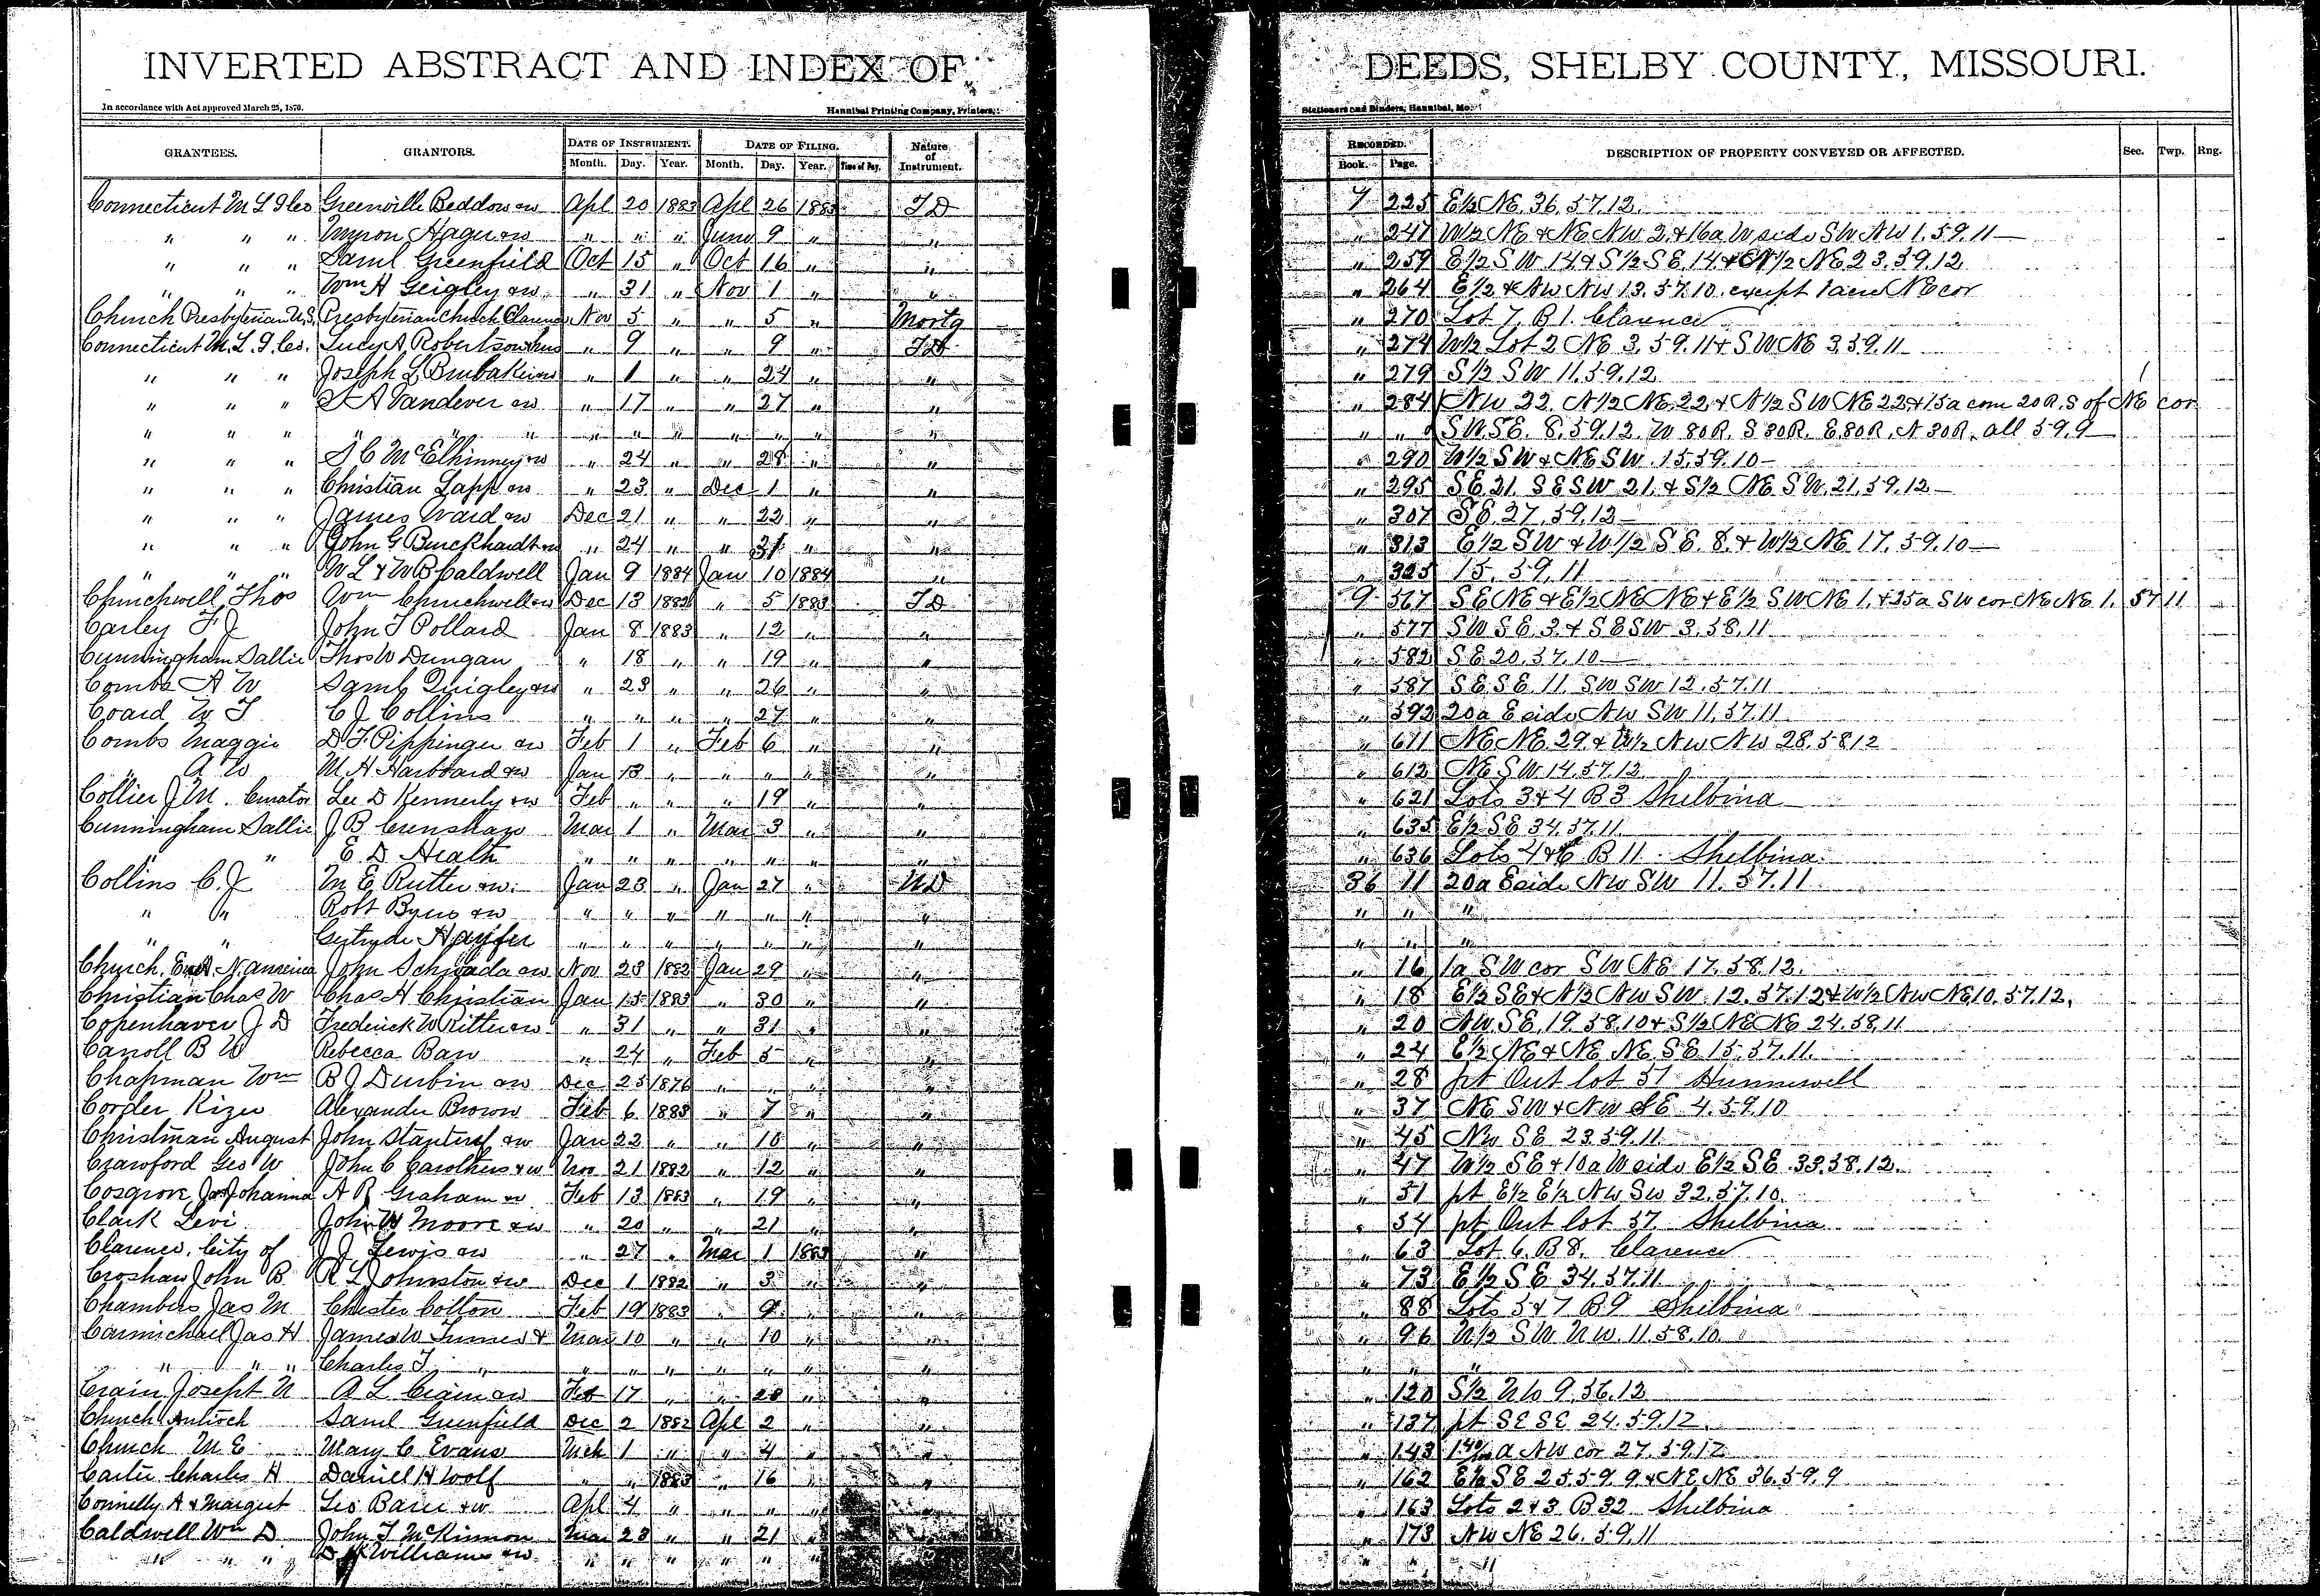 INVERTED ABSTRACT AND INDEX OF DEEDS, SHELBY COUNTY, MISSOURI.
In accordance with Act approved March 25, 1870. Hannibal Printing Company, Printers, Stationers and Binders, Hannibal, Mo.
GRANTEES. GRANTORS. DATE OF INSTRUMENT. DATE OF FILING. Nature of Instrument. RECORDED. DESCRIPTION OF PROPERTY CONVEYED OR AFFECTED. Sec. Twp. Rng.
Month. Day. Year. Month. Day. Year. Time of Day. Book. Page.
Connecticut M L I Co Greenville Beddow & w Apl 20 1883 Apl 26 1883 T D 7 225 E½ NE 36.57.12.
" " " Myron Hager & w " " " June 9 " " " 247 W½ NE & NE NW 2 & 16a W side SW NW 1.59.11
" " " Saml Greenfield Oct 15 " Oct 16 " " " 259 E½ SW 14 & S½ SE 14 & N½ NE 23.59.12
" " " Wm H Geigley & w " 31 " Nov 1 " " " 264 E½ & NW NW 13.57.10 except 1 acre NE cor
Church Presbyterian U.S. Presbyterian Church Clarence Nov 5 " " 5 " Mortg " 270 Lot 7 B 1. Clarence
Connecticut M. L. I. Co. Lucy A Robertson & hus " 9 " " 9 " T D " 274 W½ Lot 2 NE 3.59.11 & SW NE 3.59.11
" " " Joseph L Brubaker & w " 1 " " 24 " " " 279 S½ SW 11.59.12
" " " Vandever & w " 17 " " 27 " " " 284 NW 22. N½ NE 22 & N½ SW NE 22 & 15a com 20 R. S of NE cor
" " " " " " " " " " " " " " " " SW SE. 8.59.12. W 80R. S 30R. E 80R. N 30R. all 59.9
" " " S C McElhinney & w " 24 " " 28 " " " 290 W½ SW & NE SW 15.59.10
" " " Christian Lapp & w " 23 " Dec 1 " " " 295 SE 21. SE SW 21. & S½ NE SW. 21.59.12
" " " James Ward & w Dec 21 " " 22 " " " 307 SE 27.59.12
" " " John G Burckhardt & w " 24 " " 31 " " " 313 E½ SW & W½ SE. 8. & W½ NE 17.59.10
" " " W L & W B Caldwell Jan 9 1884 Jan 10 1884 " " 325 15.59.11
Churchwell Thos Wm Churchwell & w Dec 13 1882 " 5 1883 T D 9 567 SE NE & E½ NE NE & E½ SW NE 1. & 35a SW cor NE NE 1. 57 11
Carley F J John T Pollard Jan 8 1883 " 12 " " " 577 SW SE 3. & SE SW 3.58.11
Cunningham Sallie Thos W Dungan " 18 " " 19 " " " 582 SE 20.57.10
Combs A W Saml Quigley & w " 23 " " 26 " " " 587 SE SE 11. SW SW 12.57.11
Coard W T C J Collins " " " " 27 " " " 592 20a E side NW SW 11.57.11
Combs Maggie D T Pippinger & w Feb 1 " Feb 6 " " " 611 NE NE 29 & W½ NW NW 28.58.12
" A W M H Harbbard & w Jan 13 " " " " " " 612 NE SW 14.57.12
Collier J M. Curator Lee D Kennerly & w Feb " " " 19 " " " 621 Lots 3 & 4 B 3 Shelbina
Cunningham Sallie J B Crenshaw Mar 1 " Mar 3 " " " 635 E½ SE 34.57.11
" " E D Heath " " " " " " " " 636 Lots 4 & 6 B 11. Shelbina
Collins C. J M E Rutter & w Jan 23 " Jan 27 " W D 36 11 20a E side NW SW 11.57.11
" " Robt Byers & w " " " " " " " " " "
" " Gertrude Hayfer " " " " " " " " " "
Church. Evnl N. America John Schwada & w Nov 23 1882 Jan 29 " " " 16 1a SW cor SW NE 17.58.12.
Christian Chas W Chas H Christian Jan 15 1883 " 30 " " " 18 E½ SE & N½ NW SW 12.57.12 & W½ NW NE 10.57.12.
Copenhaver J D Frederick W Ritter & w " 31 " " 31 " " " 20 NW SE 19.58.10 & S½ NE NE 24.58.11
Carroll B W Rebecca Barr " 24 " Feb 5 " " " 24 E½ NE & NE NE SE 15.57.11.
Chapman Wm B J Durbin & w Dec 25 1876 " " " " " 28 pt Out lot 57 Hunnewell
Corder Kizer Alexander Brown Feb 6 1883 " 7 " " " 37 NE SW & NW SE 4.59.10
Christman August John & w Jan 22 " " 10 " " " 45 NW SE 23.59.11
Crawford Geo W John C Carothers & w Nov 21 1882 " 12 " " " 47 W½ SE & 10a W side E½ SE 33.58.12.
Cosgrove Jas & Johanna A R Graham & w Feb 13 1883 " 19 " " " 51 pt E½ E½ NW SW 32.57.10.
Clark Levi John W Moore & w " 20 " " 21 " " " 54 pt Out lot 57 Shelbina
Clarence, City of J J Lewis & w " 27 " Mar 1 1883 " " 63 Lot 6. B 8. Clarence
Croshaw John B. R L Johnston & w Dec 1 1882 " 3 " " " 73 E½ SE 34.57.11
Chambers Jas M Chester Cotton Feb 19 1883 " 9 " " " 88 Lots 5 & 7 B 9 Shelbina
Carmichael Jas H James W Turner & Mar 10 " " 10 " " " 96 N½ SW NW. 11.58.10
" " " Charles T " " " " " " " " " " "
Crain Joseph N A L Crain & w Feb 17 " " 20 " " " 120 S½ NW 9.56.12
Church Antioch Saml Greenfield Dec 2 1882 Apl 2 " " " 137 pt SE SE 24.59.12.
Church M E Mary C Evans Mch 1 " " 4 " " " 143 a NW cor 27.59.12
Carter Charles H Daniel H Woolf " " 1883 " 16 " " " 162 E½ SE 25.59.9 & NE NE 36.59.9
Connelly A & Margret Geo Baur & w Apl 4 " " " " " " 163 Lots 2 & 3 B 32 Shelbina
Caldwell Wm D. John T McKinnon Mar 23 " " 21 " " " 173 NW NE 26.59.11
" " " D K Williams & w " " " " " " " " " "